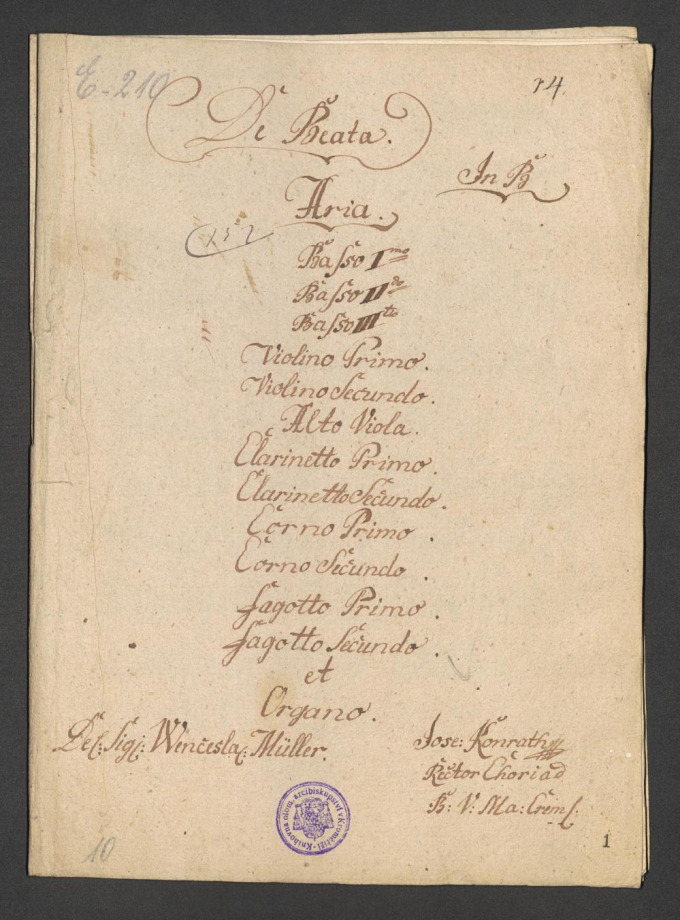 E-210
74.
De Beata.
In B
Aria.
Basso I mo
Basso II do
Basso III tio
Violino Primo.
Violino Secundo.
Alto Viola.
Clarinetto Primo.
Clarinetto Secundo.
Corno Primo.
Corno Secundo.
Fagotto Primo.
Fagotto Secundo.
et
Organo.
Del: Sig: Wencesla: Müller.
Jose: Konrath
Rector Chori ad
B: V: Ma: Crems:
Knihovna olom. arcibiskupství v Kroměříži
10
1